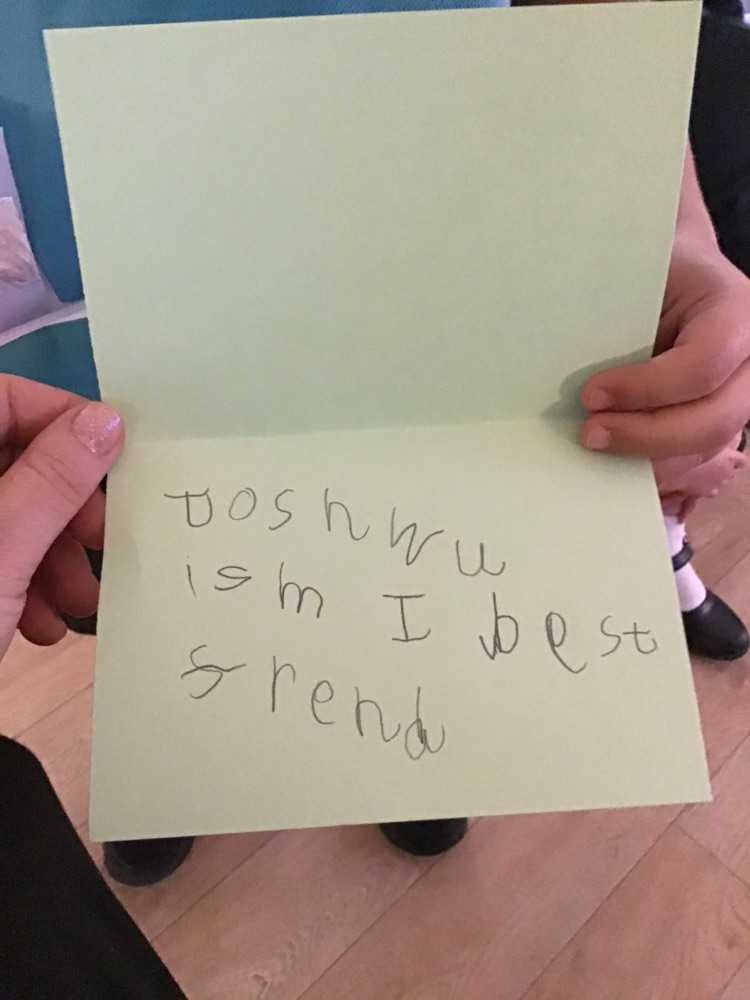 Joshwu
is m I best
frend